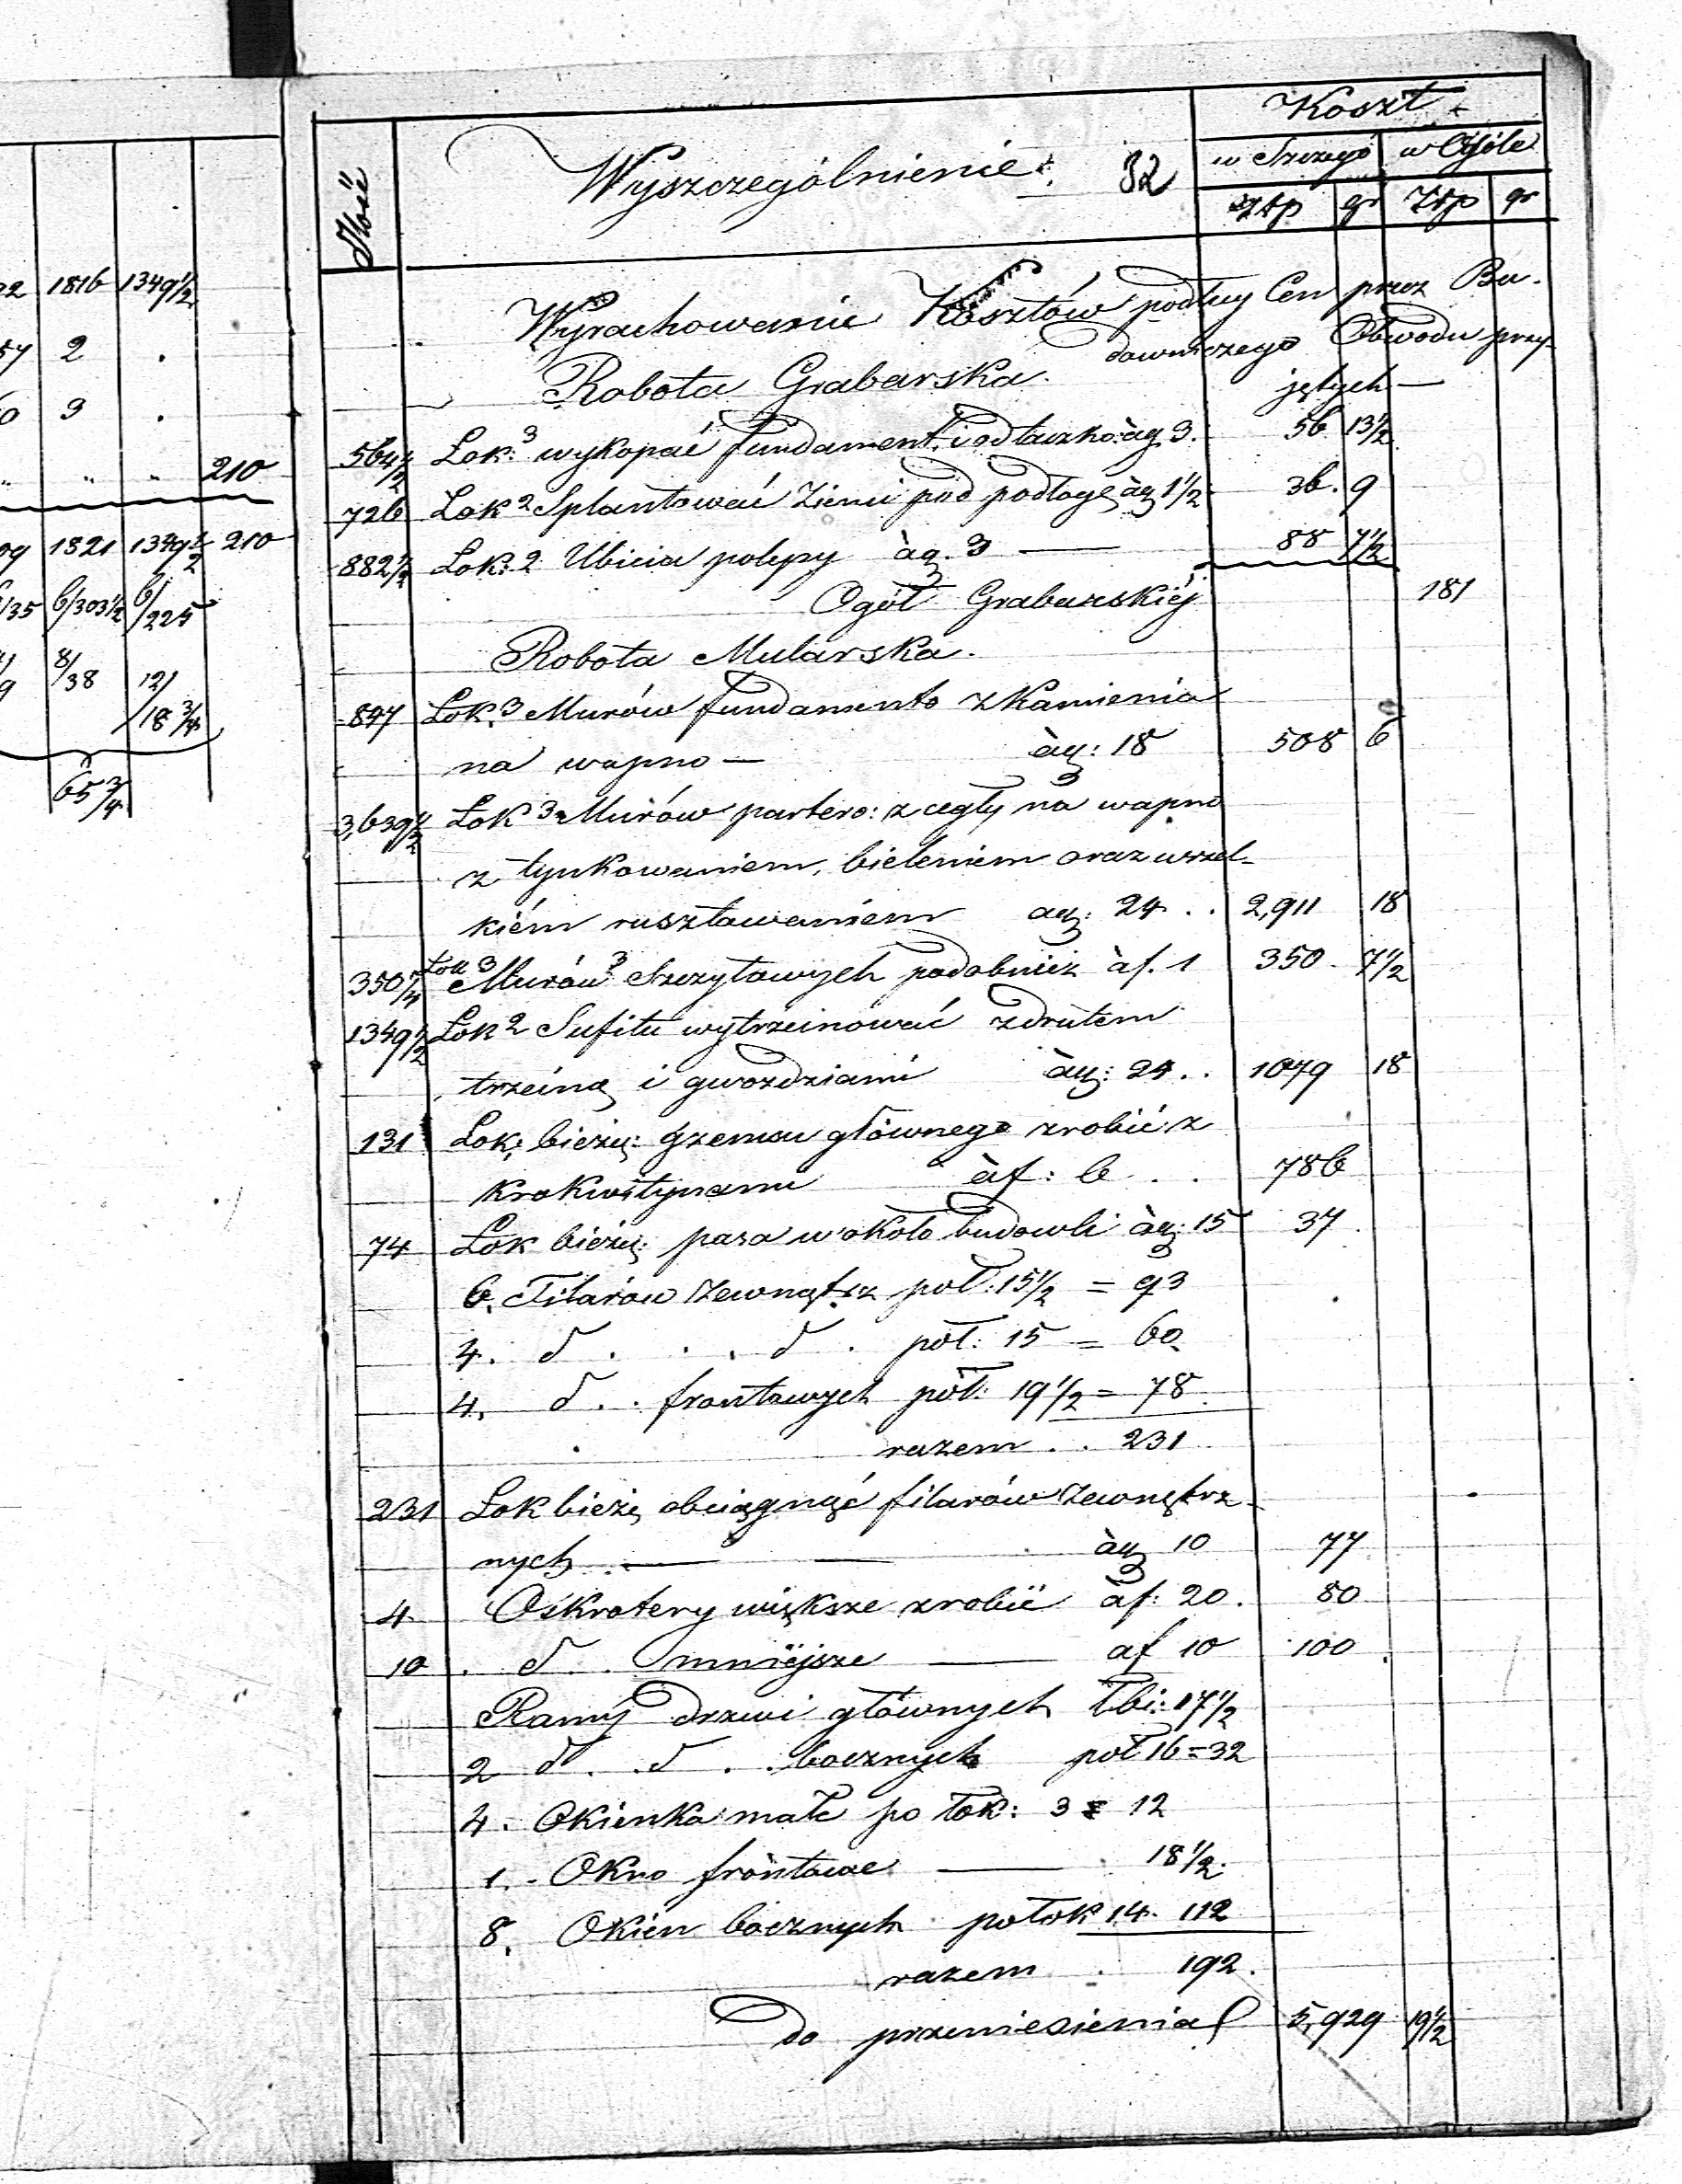 22 | 1816 | 1349 1/2
57 | 2 | .
60 | 3 | .
" | " | " | 210
99 | 1821 | 1349 1/2 | 210
/35 | 6/303 1/2 | 6/225
9 | 8/38 | 12/18 3/4
65 3/4
Ilość | Wyszczególnienie: 32 | Koszt
w Szczegó | w Ogóle
Ztp | gr | Ztp | gr
Wyrachowanie Kosztów podług Cen przez Bu-
downiczego Obwodu przy-
Robota Grabarska. jętych —
564 1/2 Łok:3 wykopać fundament: i odtaszko: àg 3. 56 13 1/2
726 Łok2 Splantować Ziemi pod podłogę àg 1 1/2 36. 9
882 1/2 Łok:2 Ubicia polepy àg. 3 — 88 7 1/2
Ogół Grabarskiéj 181
Robota Mularska.
847 Łok:3 Murów fundamento z Kamienia
na wapno — àg: 18 508 6
3,639 1/2 Łok3 Murów partero: z cegły na wapno
z tynkowaniem, bieleniem oraz wszel-
kiém rusztowaniem ag: 24 . . 2,911 18
350 1/4 Łok3 Murów Szczytowych podobnież àf. 1 350 7 1/2
1349 1/2 Łok2 Sufitu wytrzcinować z drutem
trzciną i gwoździami àg: 24 . . 1079 18
131 Łok: bieżą: gzemsu głównego zrobić z
àf: 6 . . 786
74 Łok bieżą: pasa w około budowli àg: 15 37.
6. Filarów Zewnątrz poł: 15 1/2 = 93
4. d . . . d . poł: 15 = 60.
4. d . . frontowych poł: 19 1/2 = 78.
razem . . 231
231 Łok bieżą obciągnąć filarów Zewnętrz-
nych — — àg 10 77
4. Oskrotery większe zrobić àf: 20. 80
10 . d . mniéjsze — af 10 100.
Ramy drzwi głównych łbi: 17 1/2
2 d . . d . . bocznych poł 16 = 32
4. Okienka małe po łok: 3 = 12
1. - Okno frontowe — 18 1/2.
8. Okien bocznych po łok 14. 112
razem . 192.
do przeniesienia 5,929 19 1/2